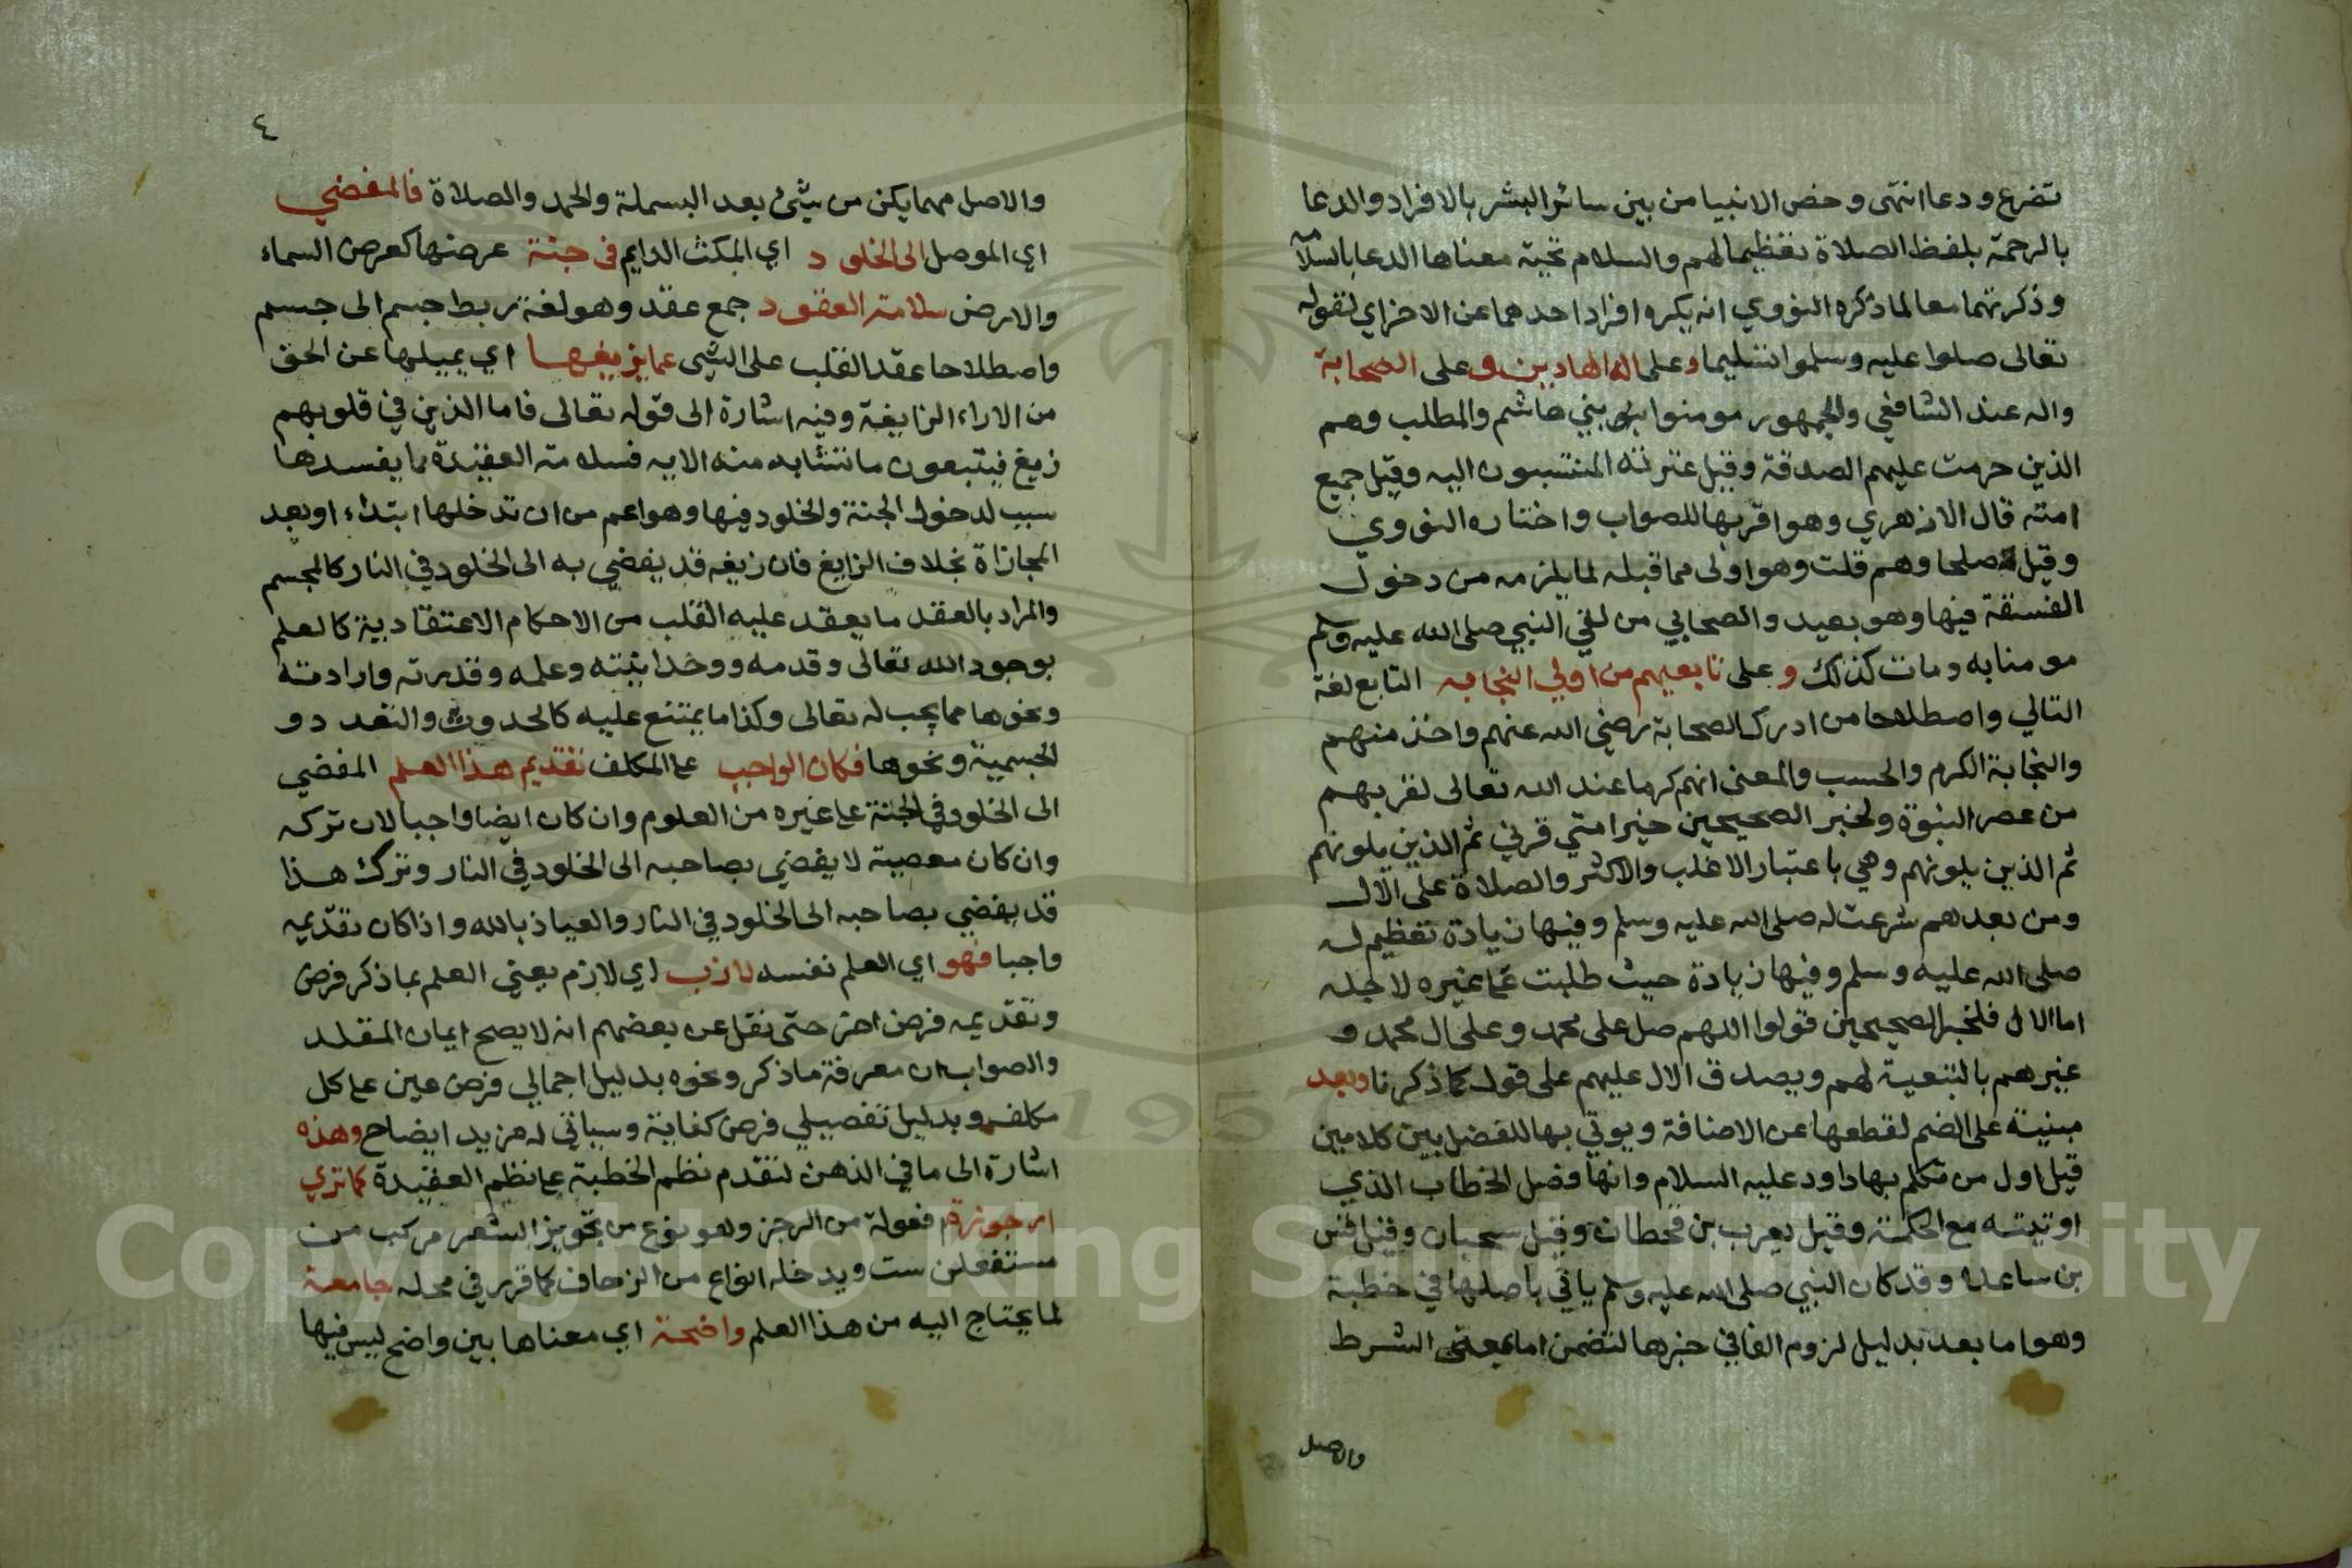 تضرع ودعا انتهى وخص الانبيا من بين سائر البشر بالافراد والدعا
بالرحمة بلفظ الصلاة تعظيما لهم والسلام تحية معناها الدعا بالسلامة
وذكرتهما معا لما ذكره النووي انه يكره افراد احدهما عن الاخر اي لقوله
تعالى صلوا عليه وسلموا تسليما وعلى اله الهادين وعلى الصحابة
واله عند الشافعي والجمهور مومنوا بني هاشم والمطلب وهم
الذين حرمت عليهم الصدقة وقيل عترته المنتسبون اليه وقيل جميع
امته قال الازهري وهو اقربها للصواب واختاره النووي
وقيل صلحاوهم قلت وهو اولى مما قبله لما يلزمه من دخول
الفسقة فيها وهو بعيد والصحابي من لقي النبي صلى الله عليه وسلم
مومنا به ومات كذلك وعلى تابعيهم من اولي النجابه التابع لغة
التالي واصطلاحا من ادرك الصحابة رضي الله عنهم واخذ منهم
والنجابة الكرم والحسب والمعنى انهم كرما عند الله تعالى لقربهم
من عصر النبوة ولخبر الصحيحين خير امتي قرني ثم الذين يلونهم
ثم الذين يلونهم وهي باعتبار الاغلب والاكثر والصلاة على الال
ومن بعدهم شرعت له صلى الله عليه وسلم وفيها زيادة تعظيم له
صلى الله عليه وسلم وفيها زيادة حيث طلبت على غيره لاجله
اما الال فلخبر الصحيحين قولوا اللهم صل على محمد وعلى ال محمد و
غيرهم بالتبعية لهم ويصدق الال عليهم على قول كما ذكرنا وبعد
مبنية على الضم لقطعها عن الاضافة ويوتي بها للفصل بين كلامين
قيل اول من تكلم بها داود عليه السلام وانها فصل الخطاب الذي
اوتيته مع الحكمة وقيل يعرب بن قحطان وقيل سحبان وقيل قس
بن ساعدة وقد كان النبي صلى الله عليه وسلم ياتي باصلها في خطبة
وهو اما بعد بدليل لزوم الفا في خبرها لتضمن اما معنى الشرط
والاصل
٤
والاصل مهما يكن من شيئ بعد البسملة والحمد والصلاة فالمفضي
اي الموصل الى الخلود اي المكث الدايم في جنة عرضها كعرض السماء
والارض سلامة العقود جمع عقد وهو لغة ربط جسم الى جسم
واصطلاحا عقد القلب على الشي عما يزيغها اي يميلها عن الحق
من الاراء الزايغة وفيه اشارة الى قوله تعالى فاما الذين في قلوبهم
زيغ فيتبعون ما تشابه منه الايه فسلامة العقيدة مما يفسدها
سبب لدخول الجنة والخلود فيها وهو اعم من ان تدخلها ابتداء او بعد
المجازاة بخلاف الزايغ فان زيغه قد يفضي به الى الخلود في النار كالمجسم
والمراد بالعقد ما يعقد عليه القلب من الاحكام الاعتقادية كالعلم
بوجود الله تعالى وقدمه ووحدانيته وعلمه وقدرته وارادته
ونحوها مما يجب له تعالى وكذا ما يمتنع عليه كالحدوث والتعدد و
الجسمية ونحوها فكان الواجب على المكلف تقديم هذا العلم المفضي
الى الخلود في الجنة على غيره من العلوم وان كان ايضا واجبا لان تركه
وان كان معصية لا يفضي بصاحبه الى الخلود في النار وترك هذا
قد يفضي بصاحبه الى الخلود في النار والعياذ بالله واذا كان تقديمه
واجبا فهو اي العلم نفسه لازب اي لازم يعني العلم بما ذكر فرض
وتقديمه فرض اخر حتى نقل عن بعضهم انه لا يصح ايمان المقلد
والصواب ان معرفة ما ذكر ونحوه بدليل اجمالي فرض عين على كل
مكلف وبدليل تفصيلي فرض كفاية وسياتي له مزيد ايضاح وهذه
اشارة الى ما في الذهن لتقدم نظم الخطبة على نظم العقيدة كما تري
ارجوزة افعولة من الرجز وهو نوع من بحور الشعر مركب من
مستفعلن ست ويدخله انواع من الزحاف كما قرر في محله جامعة
لما يحتاج اليه من هذا العلم واضحة اي معناها بين واضح ليس فيها
Copyright © King Saud University
1957